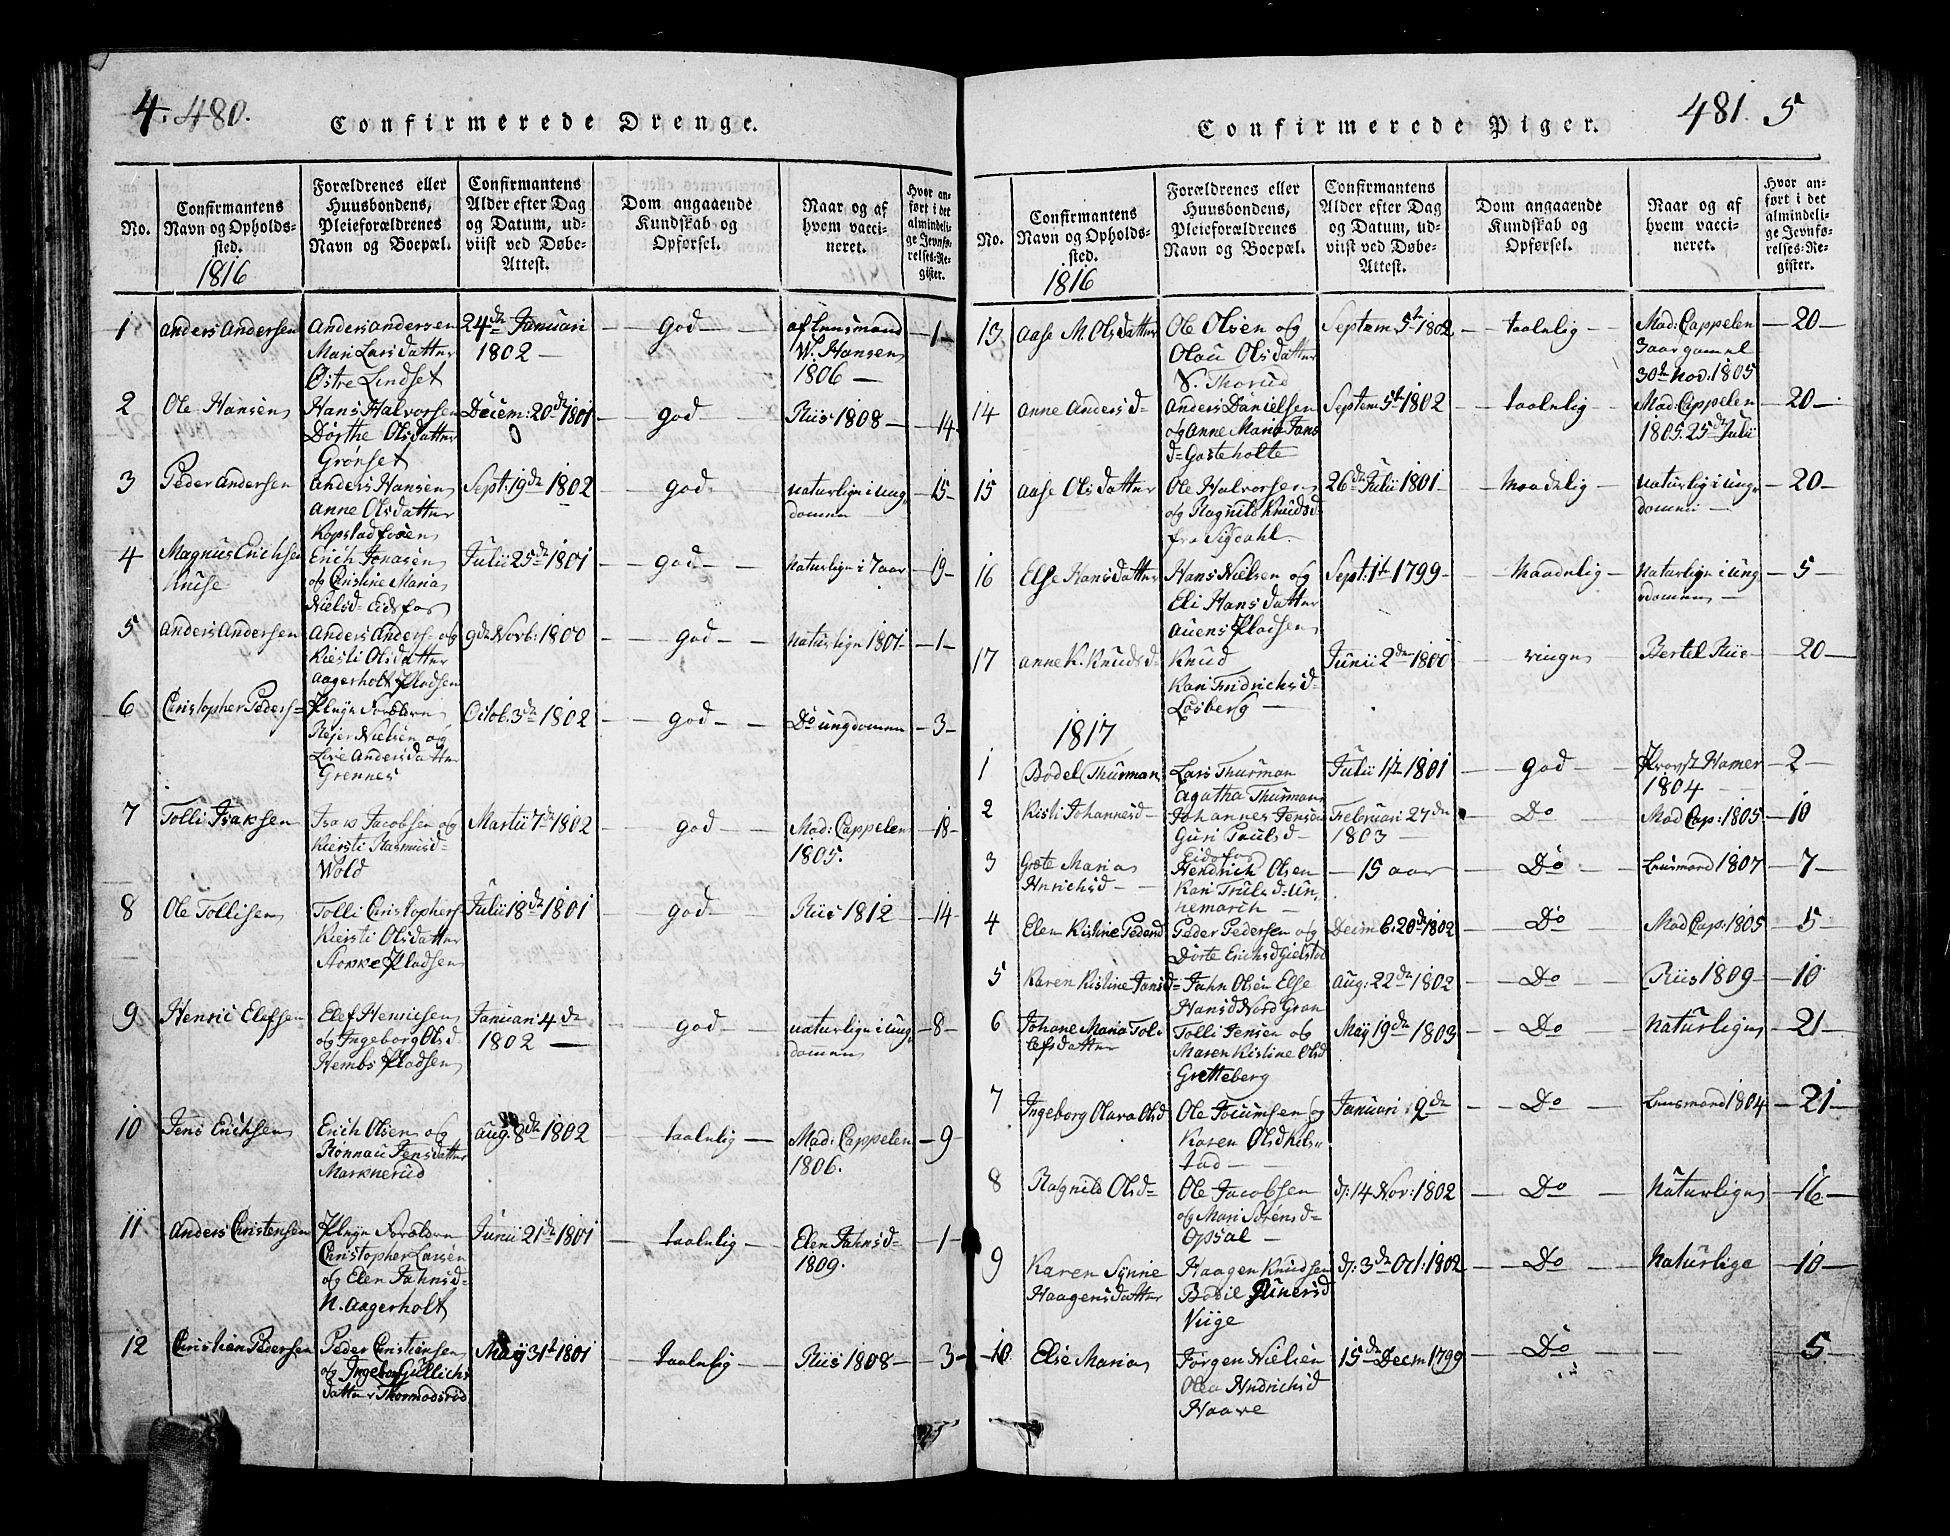 4. 480.
Confirmerede Drenge.
No.
Confirmantens
Navn og Opholds-
sted.
1816
Forældrenes eller
Huusbondens,
Pleieforældrenes
Navn og Boepæl.
Confirmantens
Alder efter Dag
og Datum, ud-
viist ved Døbe-
Attest.
Dom angaaende
Kundskab og
Opførsel.
Naar og af
hvem vacci-
neret.
Hvor an-
ført i det
almindeli-
ge Jevnfø-
relses-Re-
gister.
1
Anders Andersen
Anders Andersen
Mari Larsdatter
Østre Lindset
24de Januari
1802 —
— god —
af Lensmand
W. Hansen
1806 —
— 1 —
2
Ole Hansen
Hans Halvorsen
Dorthe Olsdatter
Grønset
Decem: 20de 1801
— god —
Riis 1808
— 14
3
Peder Andersen
Anders Hansen
Anne Olsdatter
Kopstadfosen
Sept: 19de 1802
— god —
naturlign i ung-
dommen
— 15 —
4
Magnus Erichsen
Kruse
Erich Jonasen
og Christine Maria
Nielsd= Eidsfos
Julii 25de 1801
— god —
naturlign i 7 aar
— 19 —
5
Anders Andersen
Anders Anders= og
Kiesti Olsdatter
Aagerholt Pladsen
9de Novb: 1800
— god —
naturlign 1801
— 1 —
6
Christopher Peders=
Plejn Forældrn
Rejer Nielsen og
Live Andersdatter
Grennes
Octob. 3de 1802
— god —
Do ungdommen
— 3 —
7
Tolli Isaksen
Isak Jacobsen og
Kiersti Rasmusd=
Wold
Martii 7de 1802
— god —
Mad: Cappelen
1805.
— 18 —
8
Ole Tollisen
Tolli Christophers
Kiersti Olsdatter
Pladsen
Julii 18de 1801
— god —
Riis 1812
— 14 —
9
Henric Elefsen
Elef Henricsen
og Ingeborg Olsd
Hembs Pladsen
Januari 4de
1802 —
— god —
naturlign i ung-
dommen
— 8 —
10
Jens Erichsen
Erich Olsen og
Rønnau Jensdatter
Marknerud
Aug. 8de 1802
— taalelig —
Mad: Cappelen
1806.
— 9 —
11
Anders Christensen
Plejn Forældrn
Christopher Larsen
og Elen Jahnsd=
N. Aagerholt
Junii 21de 1801
— taalelig —
Elen Jahnsd=
1809.
— 1 —
12
Christian Pedersen
Peder Christensen
og Ingeborg Gullichs
datter Thormodsrød
Maij 31t 1801
— taalelig —
Riis 1808 —
3 —
481. 5
Confirmerede Piger.
No.
Confirmantens
Navn og Opholds-
sted.
1816
Forældrenes eller
Huusbondens,
Pleieforældrenes
Navn og Boepæl.
Confirmantens
Alder efter Dag
og Datum, ud-
viist ved Døbe-
Attest.
Dom angaaende
Kundskab og
Opførsel.
Naar og af
hvem vacci-
neret.
Hvor an-
ført i det
almindeli-
ge Jevnfø-
relses-Re-
gister.
13
Aase M. Olsdatter
Ole Olsen og
Olau Olsdatter
V. Thorud
Septem 5t 1802
— taalelig —
Mad: Cappelen
3 aar gammel
30t Nov: 1805
— 20 —
14
Anne Andersd=
Anders Danielsen
og Anne Maria Jans
d= Gasteholte
Septem 5t 1802
— taalelig —
Mad: Cappelen
1805. 25de Julii
— 20 —
15
Aase Olsdatter
Ole Halvorsen
og Ragnild Knudsd
fra Sigdahl.
26de Julii 1801
— maadelig —
naturlig i ung-
dommen —
— 20 —
16
Else Hansdatter
Hans Nielsen og
Eli Hansdatter
Auens Pladsen
Sept: 1t 1799
— maadelig —
naturlign i ung-
dommen —
— 5 —
17
Anne K. Knudsd=
Knud
Kari Fredrichsd=
Løsberg —
Junii 2de 1800
— ringe
Bertel Riis —
20 —
1817
1
Bodel Thurman
Lars Thurman
Agatha Thurmans
Julii 1ste 1801
— god —
Provst Hamer
1804 —
2 —
2
Kisti Johannesd=
Johannes Jensen
Guri Paulsd=
Eidsfos
Februari 27de
1803
— Do —
Mad Cap: 1805
— 10
3
Grete Maria
Hnrichsd —
Hendrich Olsen
Kari Trulsd= Un-
nemarch —
— 15 aar
— Do —
Lensmand 1807
— 7 —
4
Elen Kistine Pedersd
Peder Pedersen og
Dorte Erichsd Gielstod
Decmb: 20de 1802
— Do —
Mad Cap: 1805
— 5 —
5
Karen Kistine Jansd=
Jahn Olsen Else
Hansd Nord Gran
Aug: 22de 1802
— Do —
Riis 1809
— 10
6
Johane Maria Tol-
lefsdatter
Tolli Jensen og
Maren Kistine Olsd
Gretteberg
Maij 19de 1803
— Do —
Naturlign
— 21 —
7
Ingeborg Olava Olsd
Ole Jocumsen og
Karen Olsd Kils-
tad —
Januari 9de
— Do —
Lensmand 1804
— 21 —
8
Ragnild Olsd=
Ole Jacobsen
og Mari Sørensd=
Opsal —
d: 14 Nov: 1802
— Do —
Naturlign
— 16 —
9
Karen Synne
Haagensdatter
Haagen Knudsen
Bodil Gunersd
Viige
d: 3de Oct: 1802
— Do —
Naturlige
— 10 —
10
Else Maria
Jørgen Nielsen
Olea Hndrichsd
Haave
15de Decm 1799
— Do —
—
5